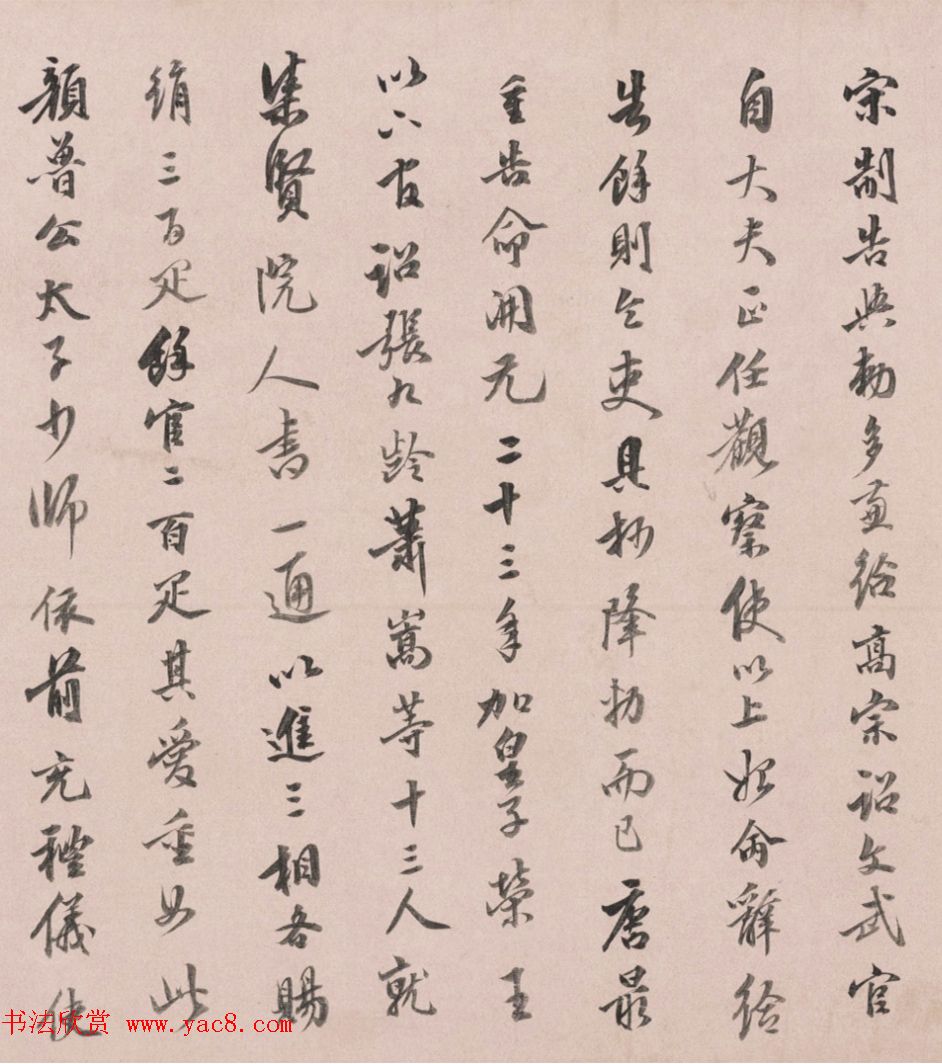 宋制告与勅多兼给高宗詔文武官
自大夫正任觀察使以上始命辭給
告餘則令吏具抄降勅而已唐最
重告命開元二十三年加皇子榮王
以下官詔張九齡蕭嵩等十三人就
集賢院人書一通以進三相各賜
絹三百疋餘官二百疋其愛重如此
顏魯公太子少師依前充禮儀使
书法欣赏 www.yac8.com